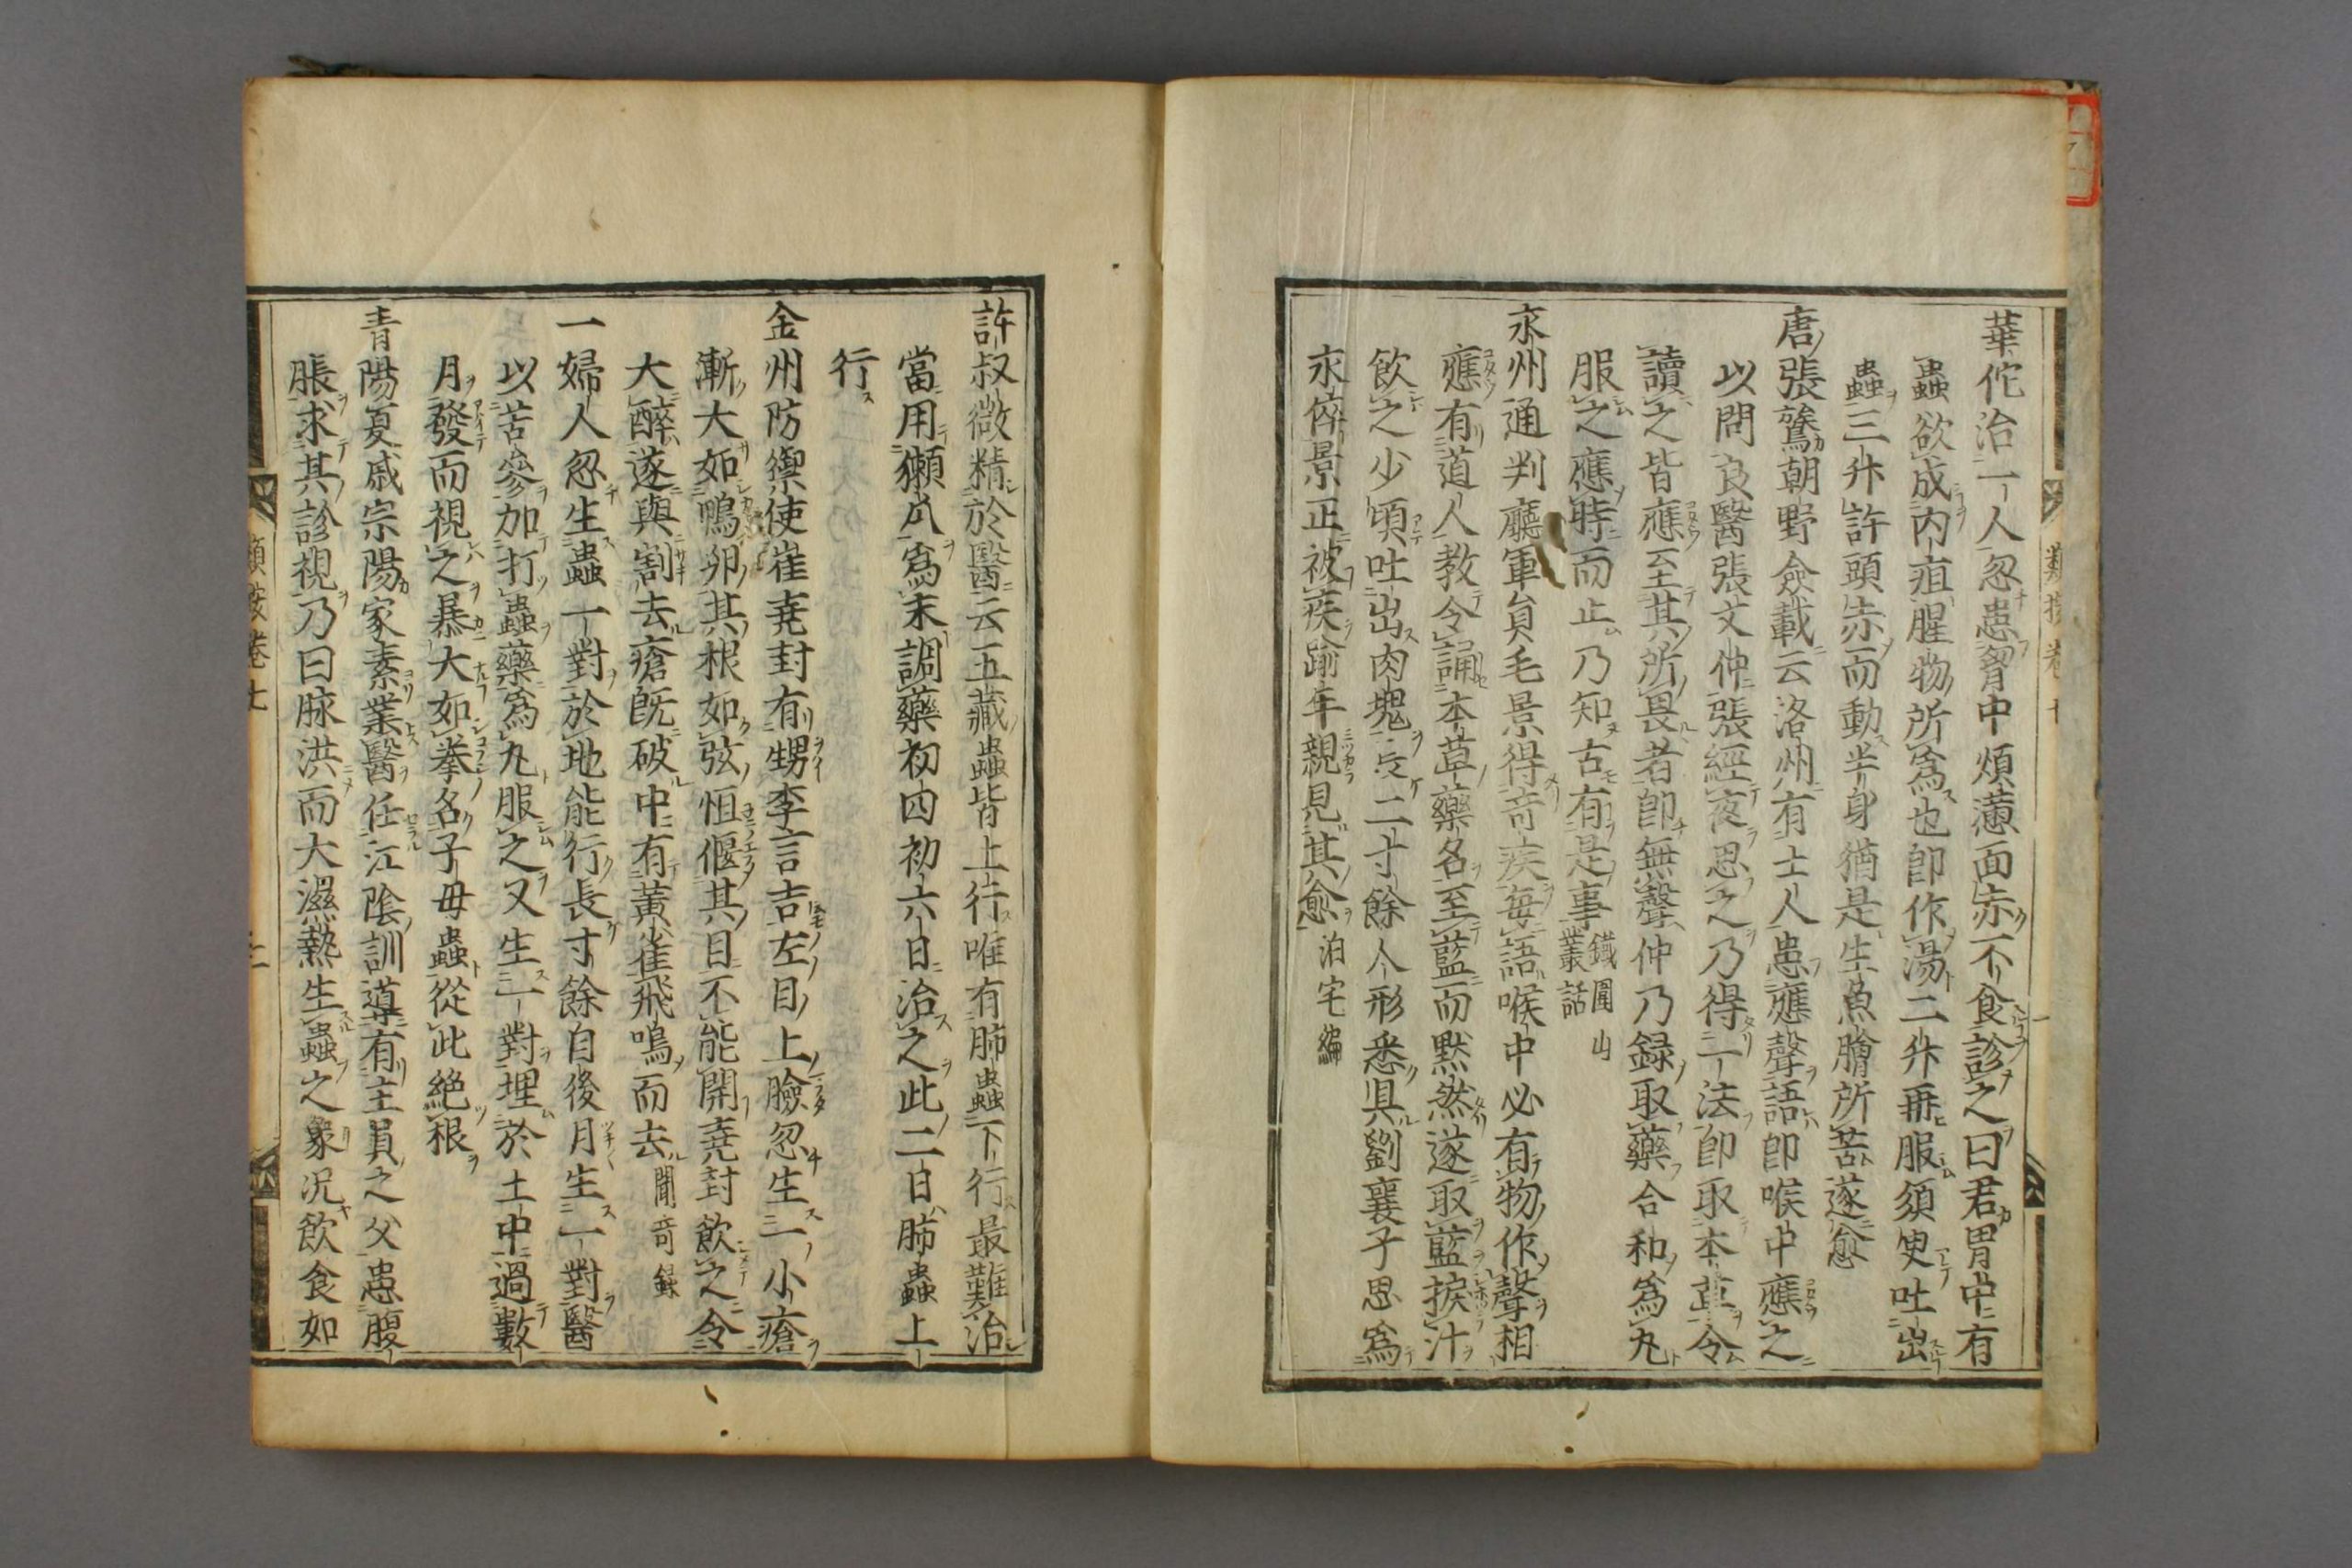 華佗治一人忽患胷中煩懣面赤不食診之曰君胃中有
蟲欲成内疽腥物所爲也卽作湯二升再服須臾吐出
蟲三升許頭赤而動半身猶是生魚膾所苦遂愈
唐張鷟朝野僉載云洛州有士人患應聲語卽喉中應之
以問良醫張文仲張經夜思之乃得一法卽取本草令
讀之皆應至其所畏者卽無聲仲乃録取藥合和爲丸
服之應時而止乃知古有是事鐵圍山叢話
永州通判廳軍員毛景得奇疾每語喉中必有物作聲相
應有道人教令誦本草藥名至藍而默然遂取藍捩汁
飲之少頃吐出肉塊長二寸餘人形悉具劉襄子思爲
永倅景正被疾踰年親見其愈泊宅編
許叔微精於醫云五藏蟲皆上行唯有肺蟲下行最難治
當用獺爪爲末調藥初四初六日治之此二日肺蟲上
行
金州防禦使崔堯封有甥李言吉左目上臉忽生一小瘡
漸大如鴨卵其根如弦恒偃其目不能開堯封飲之令
大醉遂與割去瘡既破中有黃雀飛鳴而去聞奇録
一婦人忽生蟲一對於地能行長寸餘自後月生一對醫
以苦參加打蟲藥爲丸服之又生一對埋於土中過數
月發而視之暴大如拳名子母蟲從此絶根
青陽夏戚宗陽家素業醫任江陰訓導有主員之父患腹
脹求其診視乃曰脉洪而大濕熱生蟲之象況飲食如